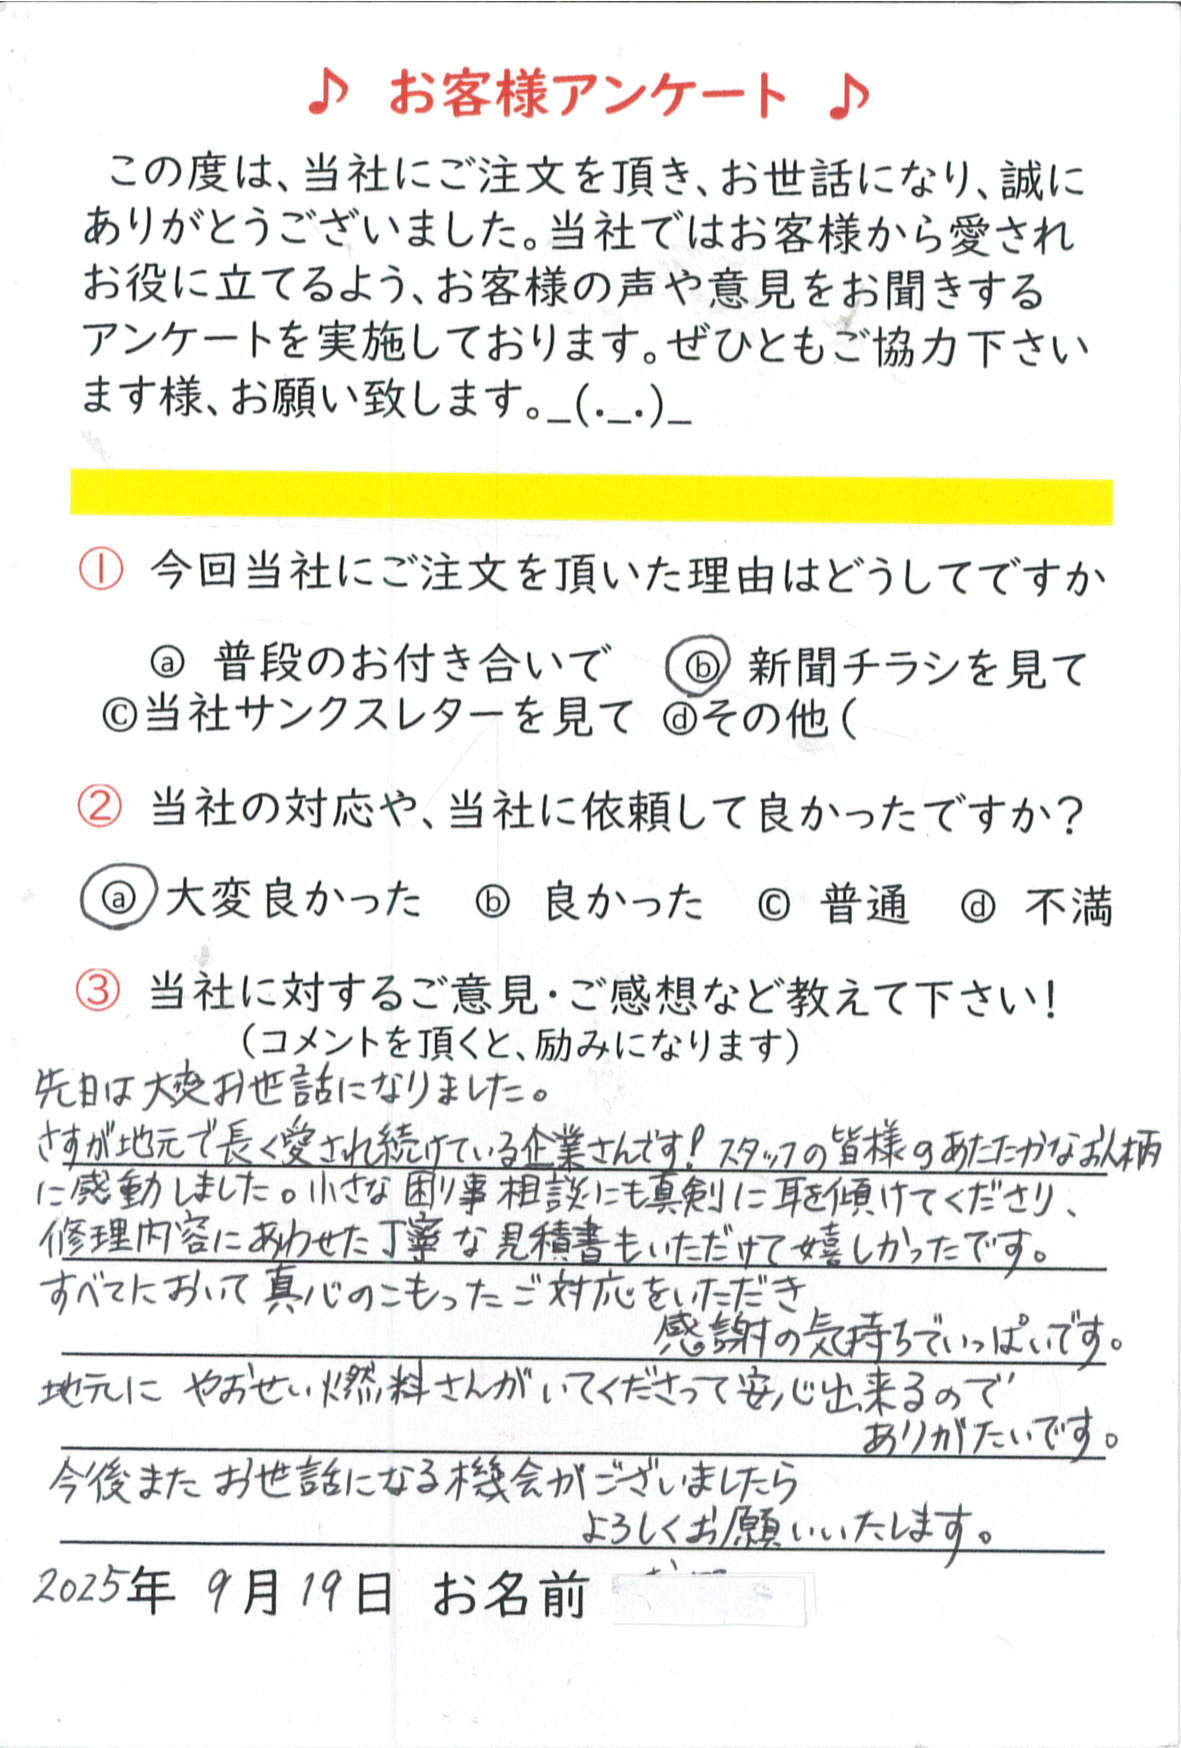 ♪ お客様アンケート ♪
この度は、当社にご注文を頂き、お世話になり、誠に
ありがとうございました。当社ではお客様から愛され
お役に立てるよう、お客様の声や意見をお聞きする
アンケートを実施しております。ぜひともご協力下さい
ます様、お願い致します。_(._.)_
① 今回当社にご注文を頂いた理由はどうしてですか
ⓐ 普段のお付き合いで ⓑ 新聞チラシを見て
Ⓒ当社サンクスレターを見て ⓓその他(
② 当社の対応や、当社に依頼して良かったですか?
ⓐ 大変良かった ⓑ 良かった Ⓒ 普通 ⓓ 不満
③ 当社に対するご意見・ご感想など教えて下さい!
(コメントを頂くと、励みになります)
先日は大変お世話になりました。
さすが地元で長く愛され続けている企業さんです!スタッフの皆様のあたたかなお人柄
に感動しました。小さな困り事相談にも真剣に耳を傾けてくださり、
修理内容にあわせた丁寧な見積書もいただけて嬉しかったです。
すべてにおいて真心のこもったご対応をいただき
感謝の気持ちでいっぱいです。
地元にやおせい燃料さんがいてくださって安心出来るので
ありがたいです。
今後またお世話になる機会がございましたら
よろしくお願いいたします。
2025年 9月19日 お名前